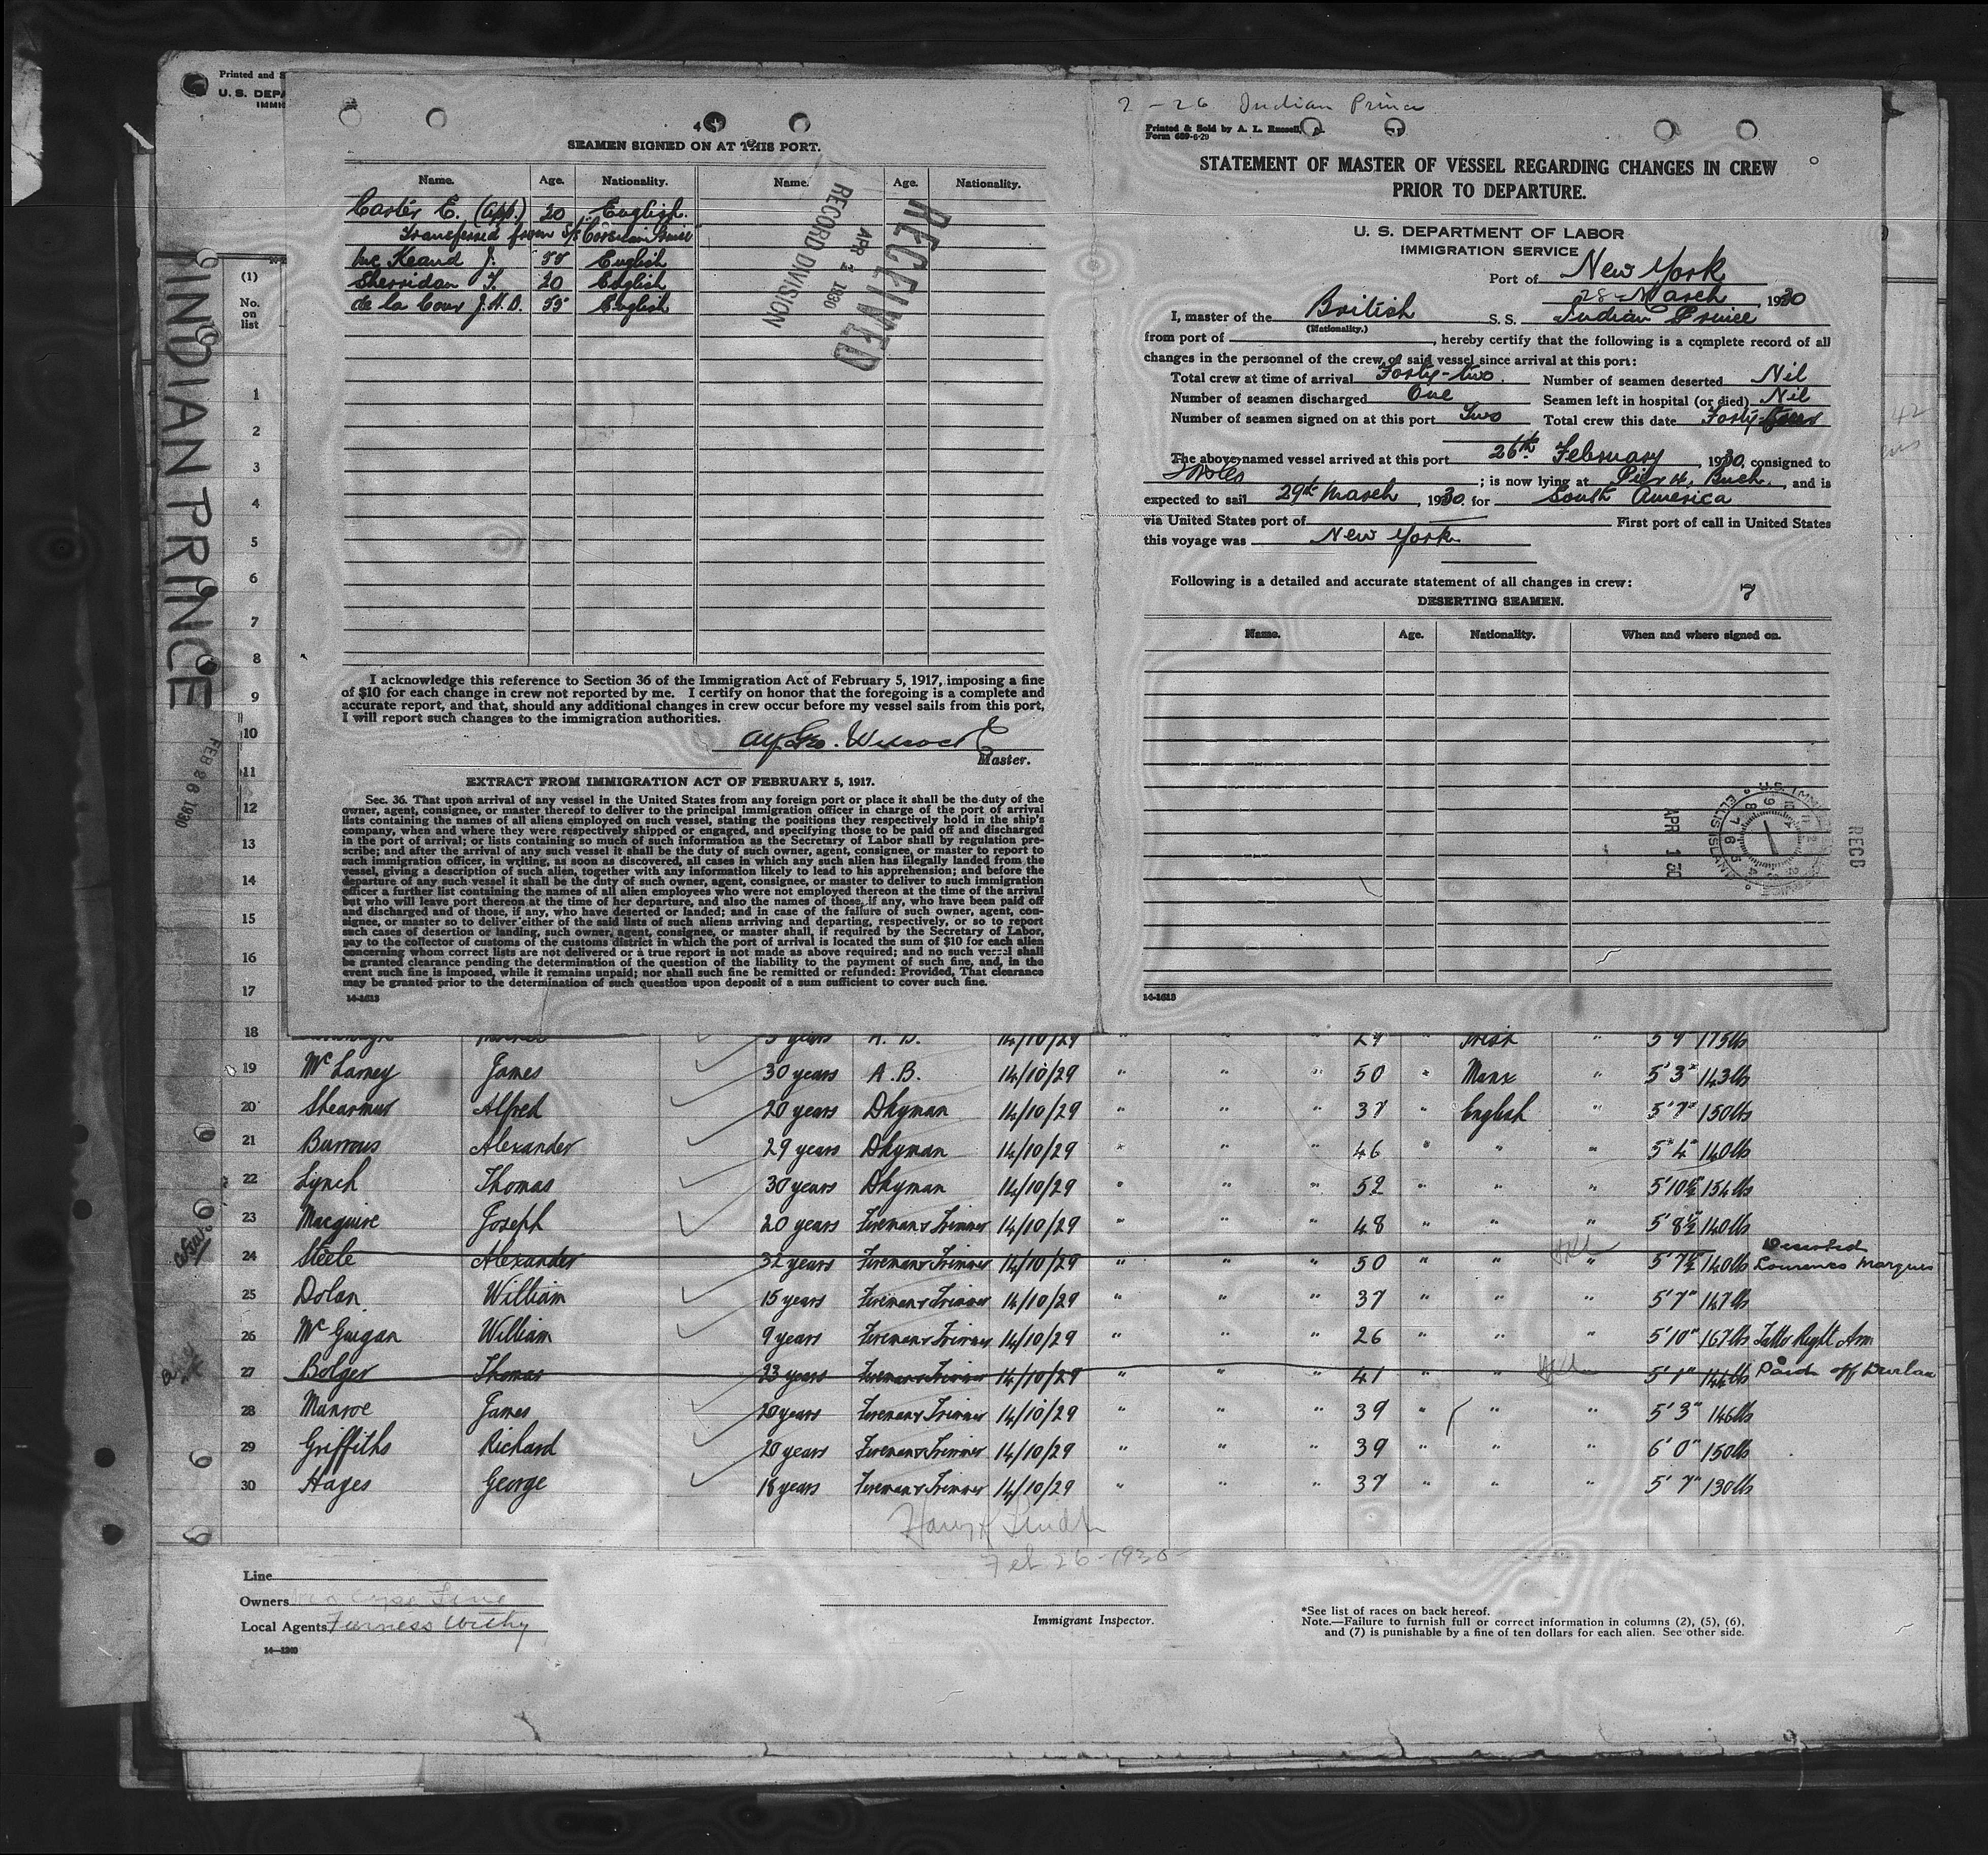 Printed and S
U. S. DEPA
IMMI
(1)
No.
on
list
INDIAN PRINCE
FEB 26 1930
4
SEAMEN SIGNED ON AT THIS PORT.
Name. Age. Nationality. Name. Age. Nationality.
Carter E. (App.) 20 English.
Transferred from S/S "Corsican Prince"
Mc Keand J. 55 English
Sherridan T. 20 English
de la Cour J.H.D. 55 English
RECEIVED
APR 2 1930
RECORD DIVISION
I acknowledge this reference to Section 36 of the Immigration Act of February 5, 1917, imposing a fine
of $10 for each change in crew not reported by me. I certify on honor that the foregoing is a complete and
accurate report, and that, should any additional changes in crew occur before my vessel sails from this port,
I will report such changes to the immigration authorities.
Alf. Geo. Wilcock
Master.
EXTRACT FROM IMMIGRATION ACT OF FEBRUARY 5, 1917.
Sec. 36. That upon arrival of any vessel in the United States from any foreign port or place it shall be the duty of the
owner, agent, consignee, or master thereof to deliver to the principal immigration officer in charge of the port of arrival
lists containing the names of all aliens employed on such vessel, stating the positions they respectively hold in the ship's
company, when and where they were respectively shipped or engaged, and specifying those to be paid off and discharged
in the port of arrival; or lists containing so much of such information as the Secretary of Labor shall by regulation pre-
scribe; and after the arrival of any such vessel it shall be the duty of such owner, agent, consignee, or master to report to
such immigration officer, in writing, as soon as discovered, all cases in which any such alien has illegally landed from the
vessel, giving a description of such alien, together with any information likely to lead to his apprehension; and before the
departure of any such vessel it shall be the duty of such owner, agent, consignee, or master to deliver to such immigration
officer a further list containing the names of all alien employees who were not employed thereon at the time of the arrival
but who will leave port thereon at the time of her departure, and also the names of those, if any, who have been paid off
and discharged and of those, if any, who have deserted or landed; and in case of the failure of such owner, agent, con-
signee, or master so to deliver either of the said lists of such aliens arriving and departing, respectively, or so to report
such cases of desertion or landing, such owner, agent, consignee, or master shall, if required by the Secretary of Labor,
pay to the collector of customs of the customs district in which the port of arrival is located the sum of $10 for each alien
concerning whom correct lists are not delivered or a true report is not made as above required; and no such vessel shall
be granted clearance pending the determination of the question of the liability to the payment of such fine, and, in the
event such fine is imposed, while it remains unpaid; nor shall such fine be remitted or refunded: Provided, That clearance
may be granted prior to the determination of such question upon deposit of a sum sufficient to cover such fine.
14-1613
2-26 Indian Prince
Printed & Sold by A. L. Russell,
Form 689-6-29
STATEMENT OF MASTER OF VESSEL REGARDING CHANGES IN CREW
PRIOR TO DEPARTURE.
U. S. DEPARTMENT OF LABOR
IMMIGRATION SERVICE
Port of New York
28 March, 1930
I, master of the British S. S. Indian Prince
(Nationality.)
from port of , hereby certify that the following is a complete record of all
changes in the personnel of the crew of said vessel since arrival at this port:
Total crew at time of arrival Forty-two. Number of seamen deserted Nil
Number of seamen discharged One Seamen left in hospital (or died) Nil
Number of seamen signed on at this port Two Total crew this date Forty-four
The above named vessel arrived at this port 26th February, 1930, consigned to
; is now lying at Pier 4, Bush., and is
expected to sail 29th March, 1930. for South America
via United States port of First port of call in United States
this voyage was New York
Following is a detailed and accurate statement of all changes in crew:
7
DESERTING SEAMEN.
Name. Age. Nationality. When and where signed on.
RECD
APR 1 30
U.S. IMMI
ELLIS ISLAND
14-1613
42
1
2
3
4
5
6
7
8
9
10
11
12
13
14
15
16
17
18 5 years A. B. 14/10/29 " " " 29 " Irish " 5' 9 175lbs
19 Mc Larney James 30 years A.B. 14/10/29 " " " 50 " Manx " 5' 3" 143lbs
20 Shearmur Alfred 20 years Dkyman 14/10/29 " " " 37 " English " 5' 7" 150lbs
21 Burrous Alexander 29 years Dkyman 14/10/29 " " " 46 " " " 5' 4" 140lbs
22 Lynch Thomas 30 years Dkyman 14/10/29 " " " 52 " " " 5' 10½ 154lbs
23 Macguire Joseph 20 years Fireman & Trimmer 14/10/29 " " " 48 " " " 5' 8½ 140lbs
24 Steele Alexander 32 years Fireman & Trimmer 14/10/29 " " " 50 " " " 5' 7½ 140lbs Deserted Lourenco Marques
25 Dolan William 15 years Fireman & Trimmer 14/10/29 " " " 37 " " " 5' 7" 147lbs
26 Mc Guigan William 9 years Fireman & Trimmer 14/10/29 " " " 26 " " " 5' 10" 167lbs Tatto Right Arm
27 Bolger Thomas 23 years Fireman & Trimmer 14/10/29 " " " 41 " " " 5' 1" 144lbs Paid off Durban
28 Munroe James 20 years Fireman & Trimmer 14/10/29 " " " 39 " " " 5' 3" 146lbs
29 Griffiths Richard 20 years Fireman & Trimmer 14/10/29 " " " 39 " " " 6' 0" 150lbs
30 Hayes George 18 years Fireman & Trimmer 14/10/29 " " " 37 " " " 5' 7" 130lbs
Feb 26-1930-
Line
Owners
Local Agents Furness Withy
14—1240
Immigrant Inspector.
*See list of races on back hereof.
Note.—Failure to furnish full or correct information in columns (2), (5), (6),
and (7) is punishable by a fine of ten dollars for each alien. See other side.